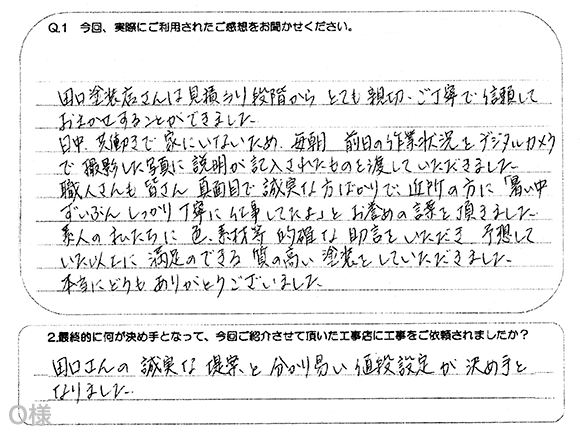 Q.1 今回、実際にご利用されたご感想をお聞かせください。
田口塗装店さんは見積もり段階から とても親切、ご丁寧で信頼して
おまかせすることができました。
日中、共働きで家にいないため、毎朝 前日の作業状況をデジタルカメラ
で撮影した写真に説明が記入されたものを渡していただきました。
職人さんも皆さん真面目で誠実な方ばかりで、近所の方に「暑い中
ずいぶんしっかり丁寧に仕事してたよ」とお誉めの言葉を頂きました。
素人の私たちに色、素材等 的確な助言をいただき 予想して
いた以上に満足のできる質の高い塗装をしていただきました。
本当にどうもありがとうございました。
2.最終的に何が決め手となって、今回ご紹介させて頂いた工事店に工事をご依頼されましたか?
田口さんの誠実な提案と分かり易い値段設定が決め手と
なりました。
O様